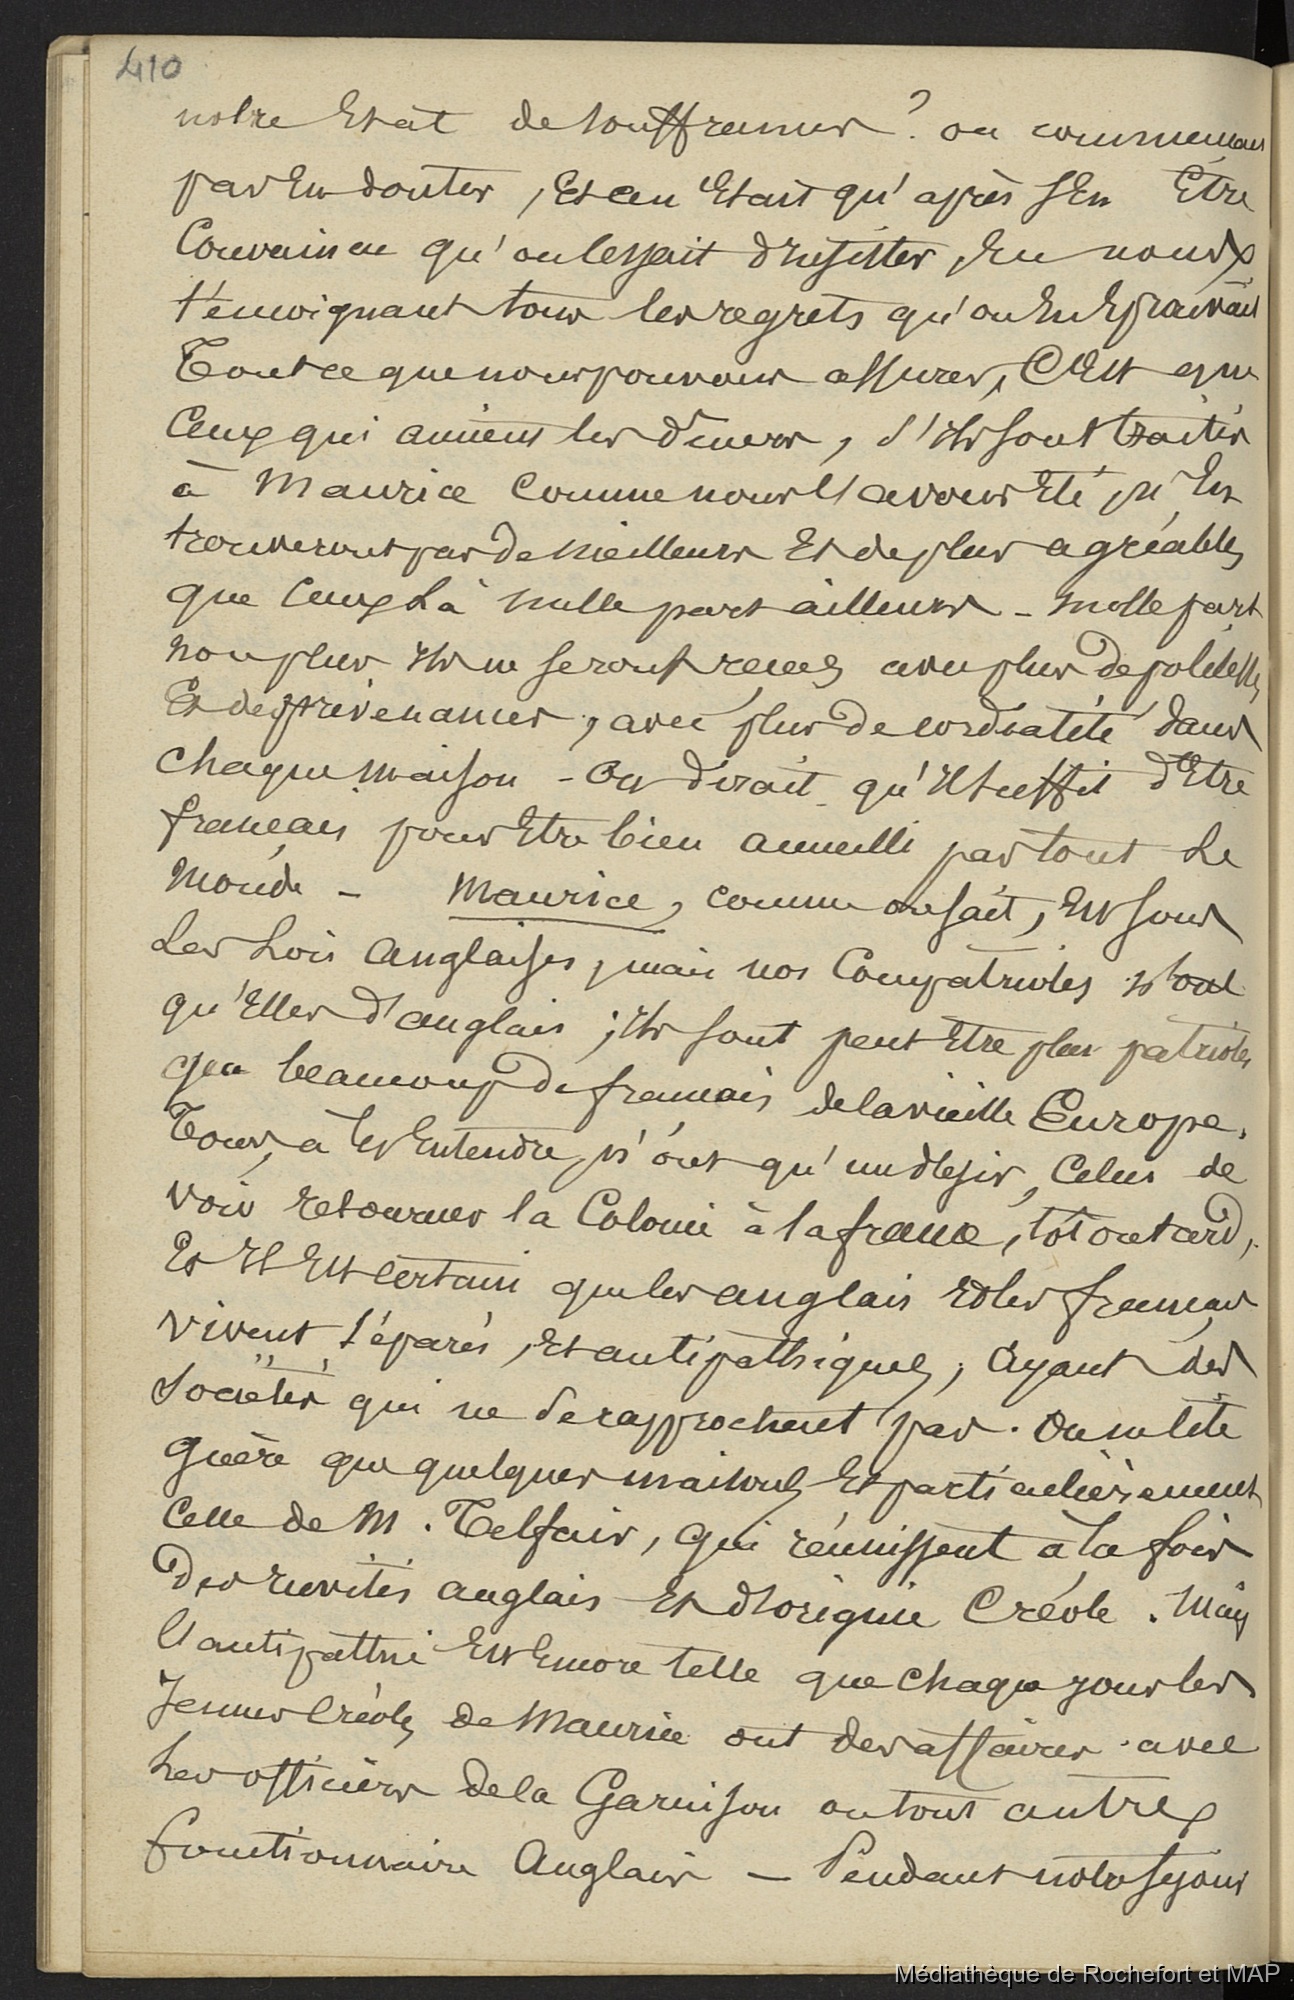 410
notre Etat de souffrances ? on commençait
par En douter, Et ce n'Etait qu'après s'En Etre
Convaincu qu'on cessait d'insister, En nous
témoignant tous les regrets qu'on En Eprouvait
Tout ce que nous pouvons assurer, C'Est que
Ceux qui aiment les diners, s'ils sont traités
à Maurice Comme nous l'avons Eté, n'En
trouveront pas de meilleurs Et de plus agréables
que Ceux Là nulle part ailleurs - nulle part
non plus Ils ne seront reçus avec plus de politesse,
Et de prévenances, avec plus de cordialité dans
chaque maison - On dirait qu'Il suffit d'Etre
français pour Etre bien accueilli par tout Le
Monde - Maurice, comme on sait, Est sous
Les Lois anglaises, mais nos Compatriotes n'ont
qu'Elles d'anglais ; Ils sont peut Etre plus patriotes
que beaucoup de français de la vieille Europe.
Tous, à les Entendre, n'ont qu'un désir, Celui de
voir retourner la Colonie à la france, tôt ou tard,
Et Il Est certain que les anglais Et les français
vivent séparés, Et antipathiques, ayant des
Sociétés qui ne se rapprochent pas. On ne cite
guère que quelques maisons Et particulièrement
Celle de M. Telfair, qui réunissent à la fois
des invités anglais Et d'origine Créole. Mais
l'antipathie Est Encore telle que chaque jour les
Jeunes Créoles de Maurice ont des affaires avec
Les officiers de la Garnison ou tout autre
fonctionnaire Anglais - Pendant notre séjour
Médiathèque de Rochefort et MAP